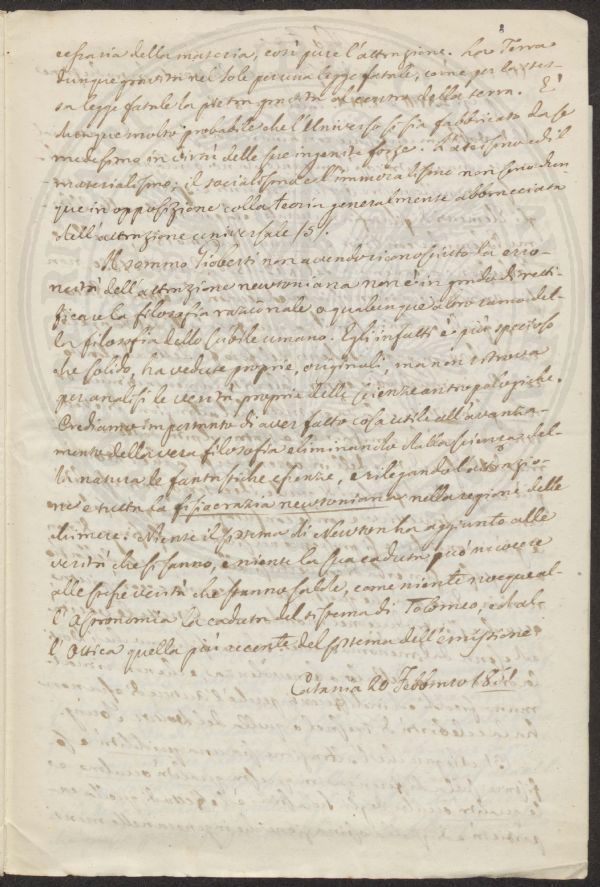 cessaria della materia, così pure l'attrazione. La Terra
dunque gravita nel Sole per una legge fatale, come per la stes-
sa legge fatale la pietra gravita al centro della terra. È
dunque molto probabile che l'Universo si sia fabbricato da se
medesimo in virtù delle sue ingenite forze. L'ateismo ed il
materialismo, il socialismo e l'immoralismo non sono dun-
que in opposizione colla teoria generalmente abbracciata
dell'attrazione universale
Il sommo Gioberti non avendo riconosciuto la erro-
neità dell'attrazione newtoniana non è in grado di retti-
ficare la filosofia razionale o qualunque altro ramo del-
la filosofia dello scibile umano. Egli infatti è più specioso
che solido, ha vedute proprie, originali, ma non ritrova
per analisi le verità proprie delle scienze antropologiche.
Crediamo impertanto di aver fatto cosa utile all'avanza-
mento della vera filosofia eliminando dalla scienza del-
la natura le fantastiche essenze, e rilegando l'attrazio-
ne e tutta la fisiocrazia newtoniana nella regione delle
chimere. Niente il sistema di Newton ha aggiunto alle
verità che si sanno, e niente la sua caduta può nuocere
alle stesse verità che stanno salde, come niente nocque al-
l'Astronomia la caduta del sistema di Tolomeo, ed al-
l'Ottica quella più recente del sistema dell'emissione.
Catania 20 Febbraio